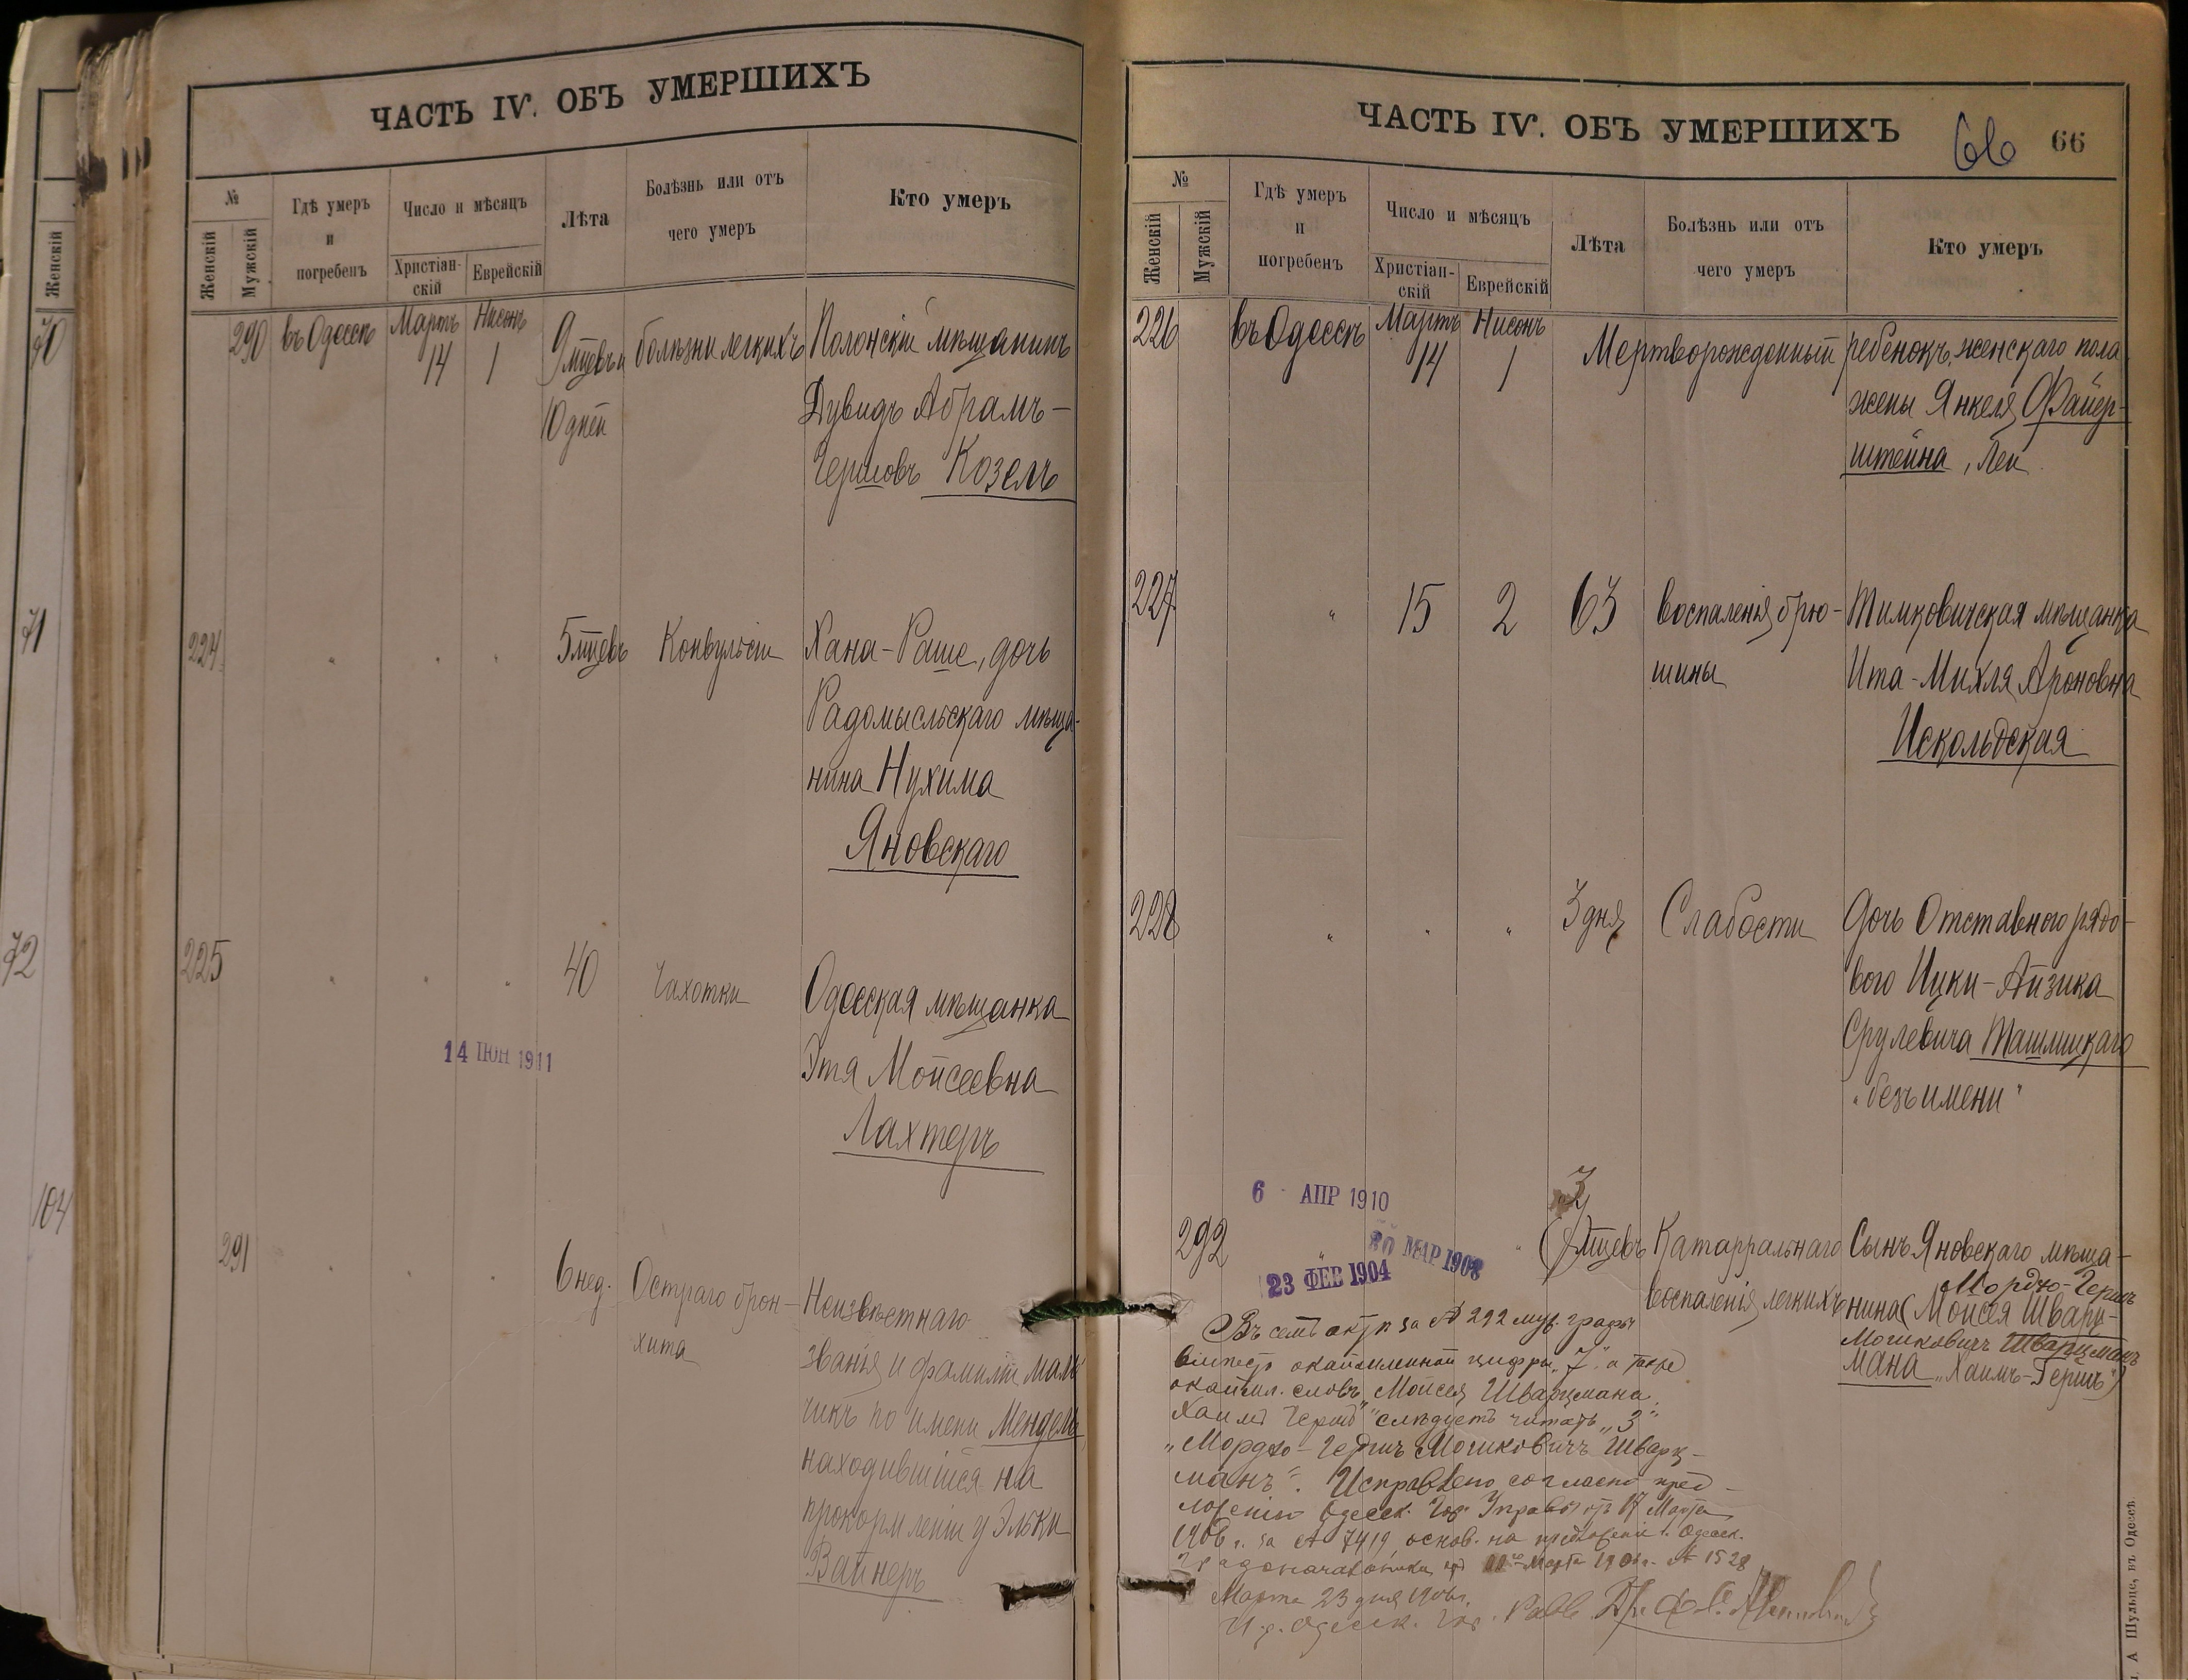 70
71
72
104
Женскій
ЧАСТЬ IV. ОБЪ УМЕРШИХЪ
№
Женскій
Мужскій
Гдѣ умеръ
и
погребенъ
Число и мѣсяцъ
Христіан-
скій
Еврейскій
Лѣта
Болѣзнь или отъ
чего умеръ
Кто умеръ
290
въ Одессѣ
Мартъ
14
Нисонъ
1
9 мцевъ и
10 дней
болѣзни легкихъ
Полонскій мѣщанинъ
Дувидъ Абрамъ-
Гершовъ Козелъ
224
" " "
5 мцевъ
Конвульсіи
Хана-Раше, дочь
Радомысльскаго мѣща-
нина Нухима
Яновскаго
225
" " "
40
Чахотки
Одесская мѣщанка
Этя Мойсеевна
Лахтеръ
14 ІЮН 1911
291
" " "
6 нед.
Остраго брон-
хита
Неизвѣстнаго
званія и фамиліи маль
чикъ по имени Мендель
находившійся на
прокормленіи у Эльки
Вайнеръ
ЧАСТЬ IV. ОБЪ УМЕРШИХЪ
66
66
№
Женскій
Мужскій
Гдѣ умеръ
и
погребенъ
Число и мѣсяцъ
Христіан-
скій
Еврейскій
Лѣта
Болѣзнь или отъ
чего умеръ
Кто умеръ
226
въ Одессѣ
Мартъ
14
Нисонъ
1
Мертворожденный ребенокъ женскаго пола
жены Янкеля Файер-
штейна, Леи
227
"
15
2
63
воспаленія брю-
шины
Тимковичская мѣщанка
Ита-Михля Ароновна
Искольдская
228
" " "
3 дня
Слабости
Дочь Отставного рядо-
вого Ицки-Айзика
Срулевича Ташлицкаго
"безъ имени"
6 АПР 1910
30 МАР 1908
23 ФЕВ 1904
292
" "
3
(7) мцевъ
Катарральнаго
воспаленія легкихъ
Сынъ Яновскаго мѣща-
Мордхо-Гершъ
нина (Мойсея Шварц-
Мошковичъ Шварцманъ
мана "Хаимъ-Гершъ")
Въ семъ актѣ за № 292 муж. графы
вмѣсто окаймленной цифры "7" а также
окаймл. словъ "Мойсея Шварцмана
Хаимъ Гершъ" слѣдуетъ читать "3"
"Мордхо-Гершъ Мошковичъ Шварц-
манъ". Исправлено согласно пред-
ложенію Одесск. Гор. Управы отъ 17 Марта
1906 г. за № 7419, основ. на предложеніи г. Одесск.
Градоначальника отъ Марта № 1528
Марта 23 дня 1906 г.
И. д. Одесск. Гор. Равв.
А Шульце, въ Одессѣ